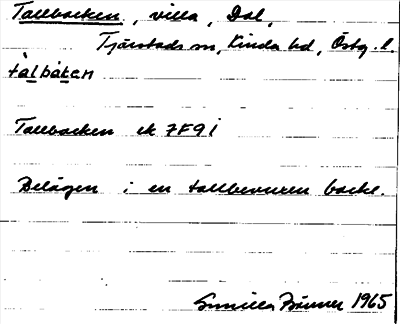 Tallbacken, villa, Dal,
Tjärstads sn, Kinda hd, Östg. l.
tàlbákɛn
Tallbacken ek 7F9i
Belägen i en tallbevuren backe.
Gunilla 1965